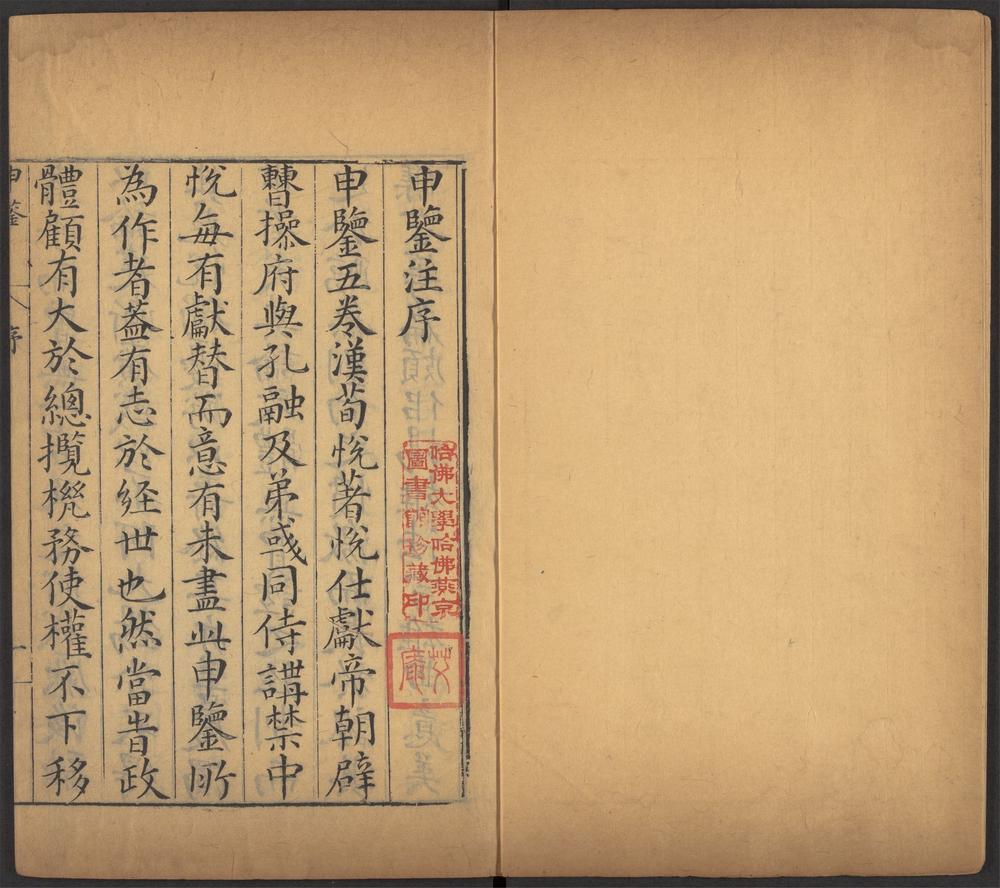 申鑒注序
申鑒五卷漢荀悅著悅仕獻帝朝辟
曹操府與孔融及弟彧同侍講禁中
悅每有獻替而意有未盡此申鑒所
為作者蓋有志於經世也然當時政
體顧有大於總攬機務使權不下移
申鑒 序 一
哈佛大學哈佛燕京
圖書館珍藏印